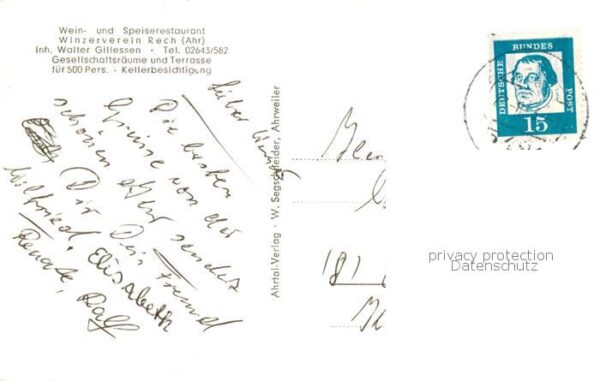 Wein- und Speiserestaurant
Winzerverein Rech (Ahr)
Inh. Walter Gillessen • Tel. 02643/582
Gesellschaftsräume und Terrasse
für 500 Pers. • Kellerbesichtigung
Lieber
Die besten
Grüsse von der
schönen Ahr sendet
Dir Dein Freund
Wilfried, Elisabeth
Renate, Ralf
Ahrtal-Verlag • W. Segschneider, Ahrweiler
DEUTSCHE
BUNDES
POST
15
privacy protection
Datenschutz